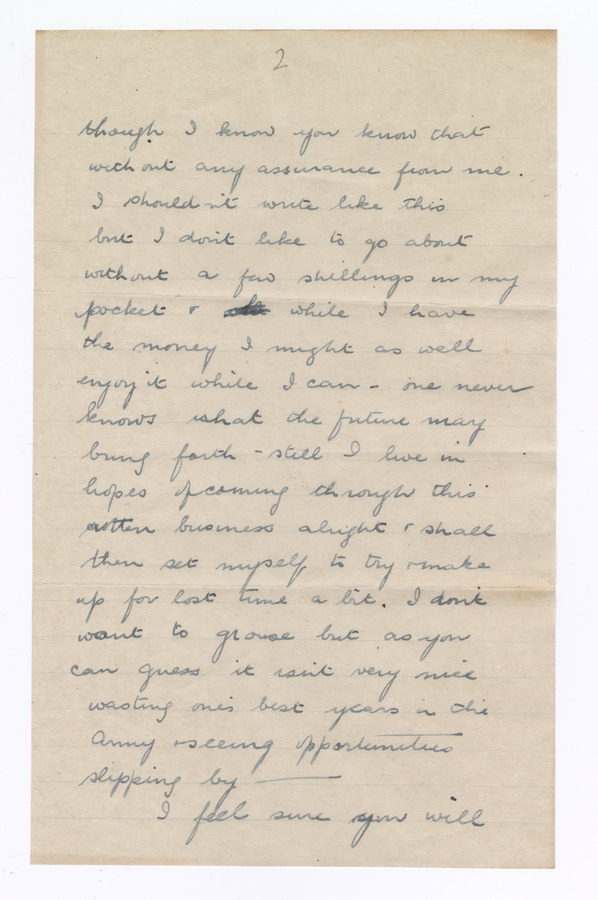 2
though I know you know that
without any assurance from me.
I shouldn't write like this
but I don't like to go about
without a few shillings in my
pocket & while I have
the money I might as well
enjoy it while I can - one never
knows what the future may
bring forth - still I live in
hopes of coming through this
rotten business alright & shall
then set myself to try & make
up for lost time a bit. I don't
want to grouse but as you
can guess it isn't very nice
wasting one's best years in the
Army & seeing opportunities
slipping by —
I feel sure you will